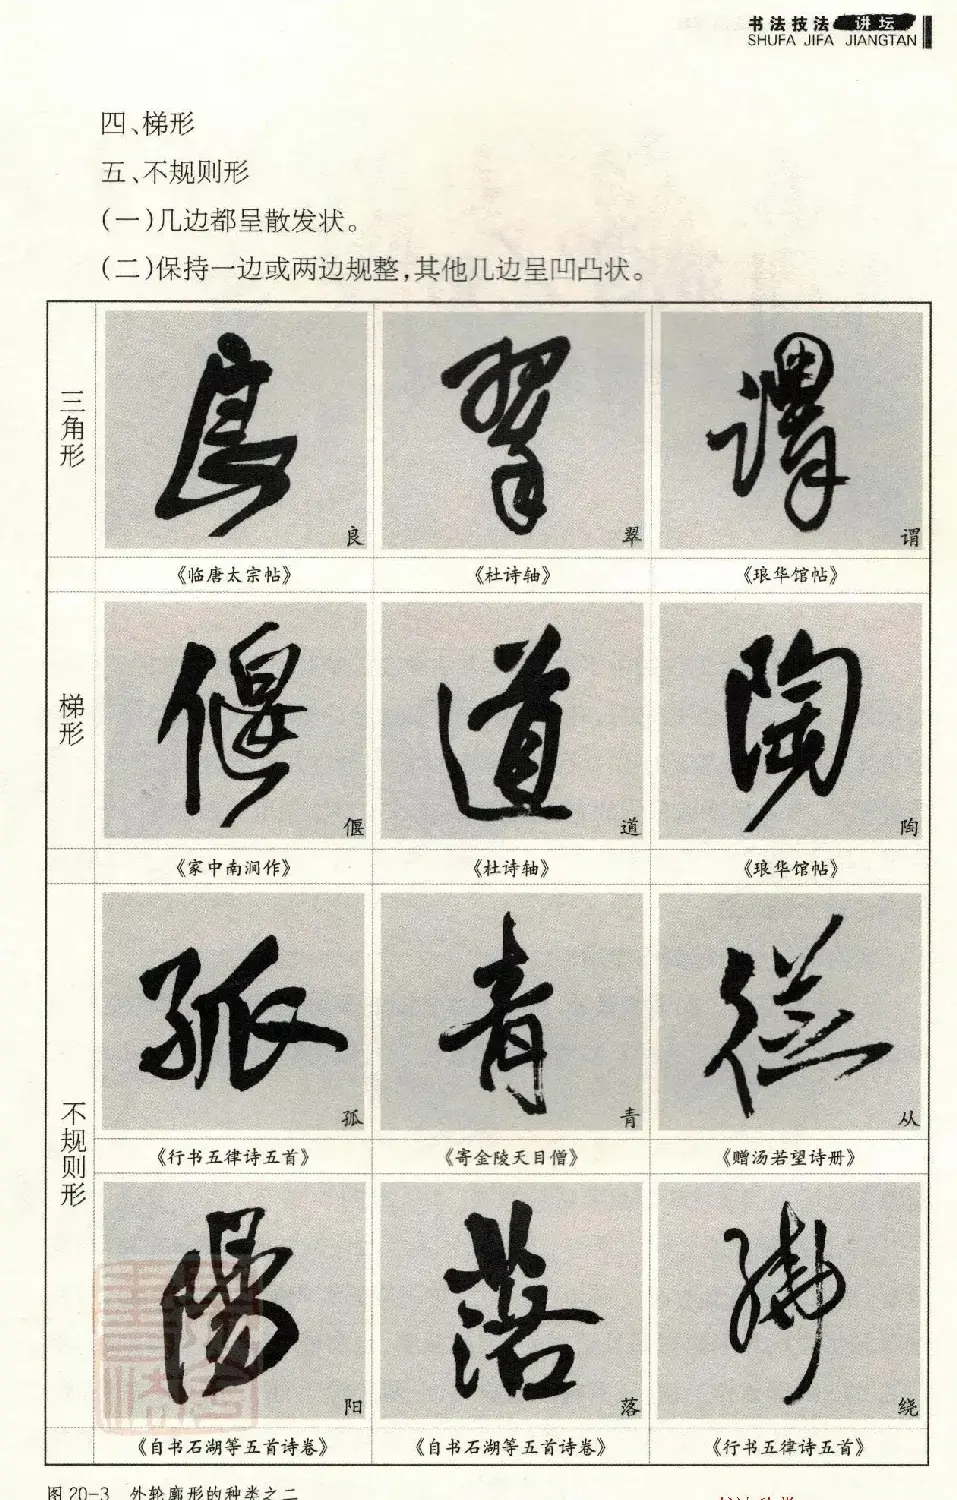 书法技法 讲坛
SHUFA JIFA JIANGTAN
四、梯形
五、不规则形
(一)几边都呈散发状。
(二)保持一边或两边规整,其他几边呈凹凸状。
三角形
良 翠 谓
《临唐太宗帖》 《杜诗轴》 《琅华馆帖》
梯形
偃 道 陶
《家中南涧作》 《杜诗轴》 《琅华馆帖》
不规则形
孤 青 从
《行书五律诗五首》 《寄金陵天目僧》 《赠汤若望诗册》
阳 落 绕
《自书石湖等五首诗卷》 《自书石湖等五首诗卷》 《行书五律诗五首》
图20-3 外轮廓形的种类之二